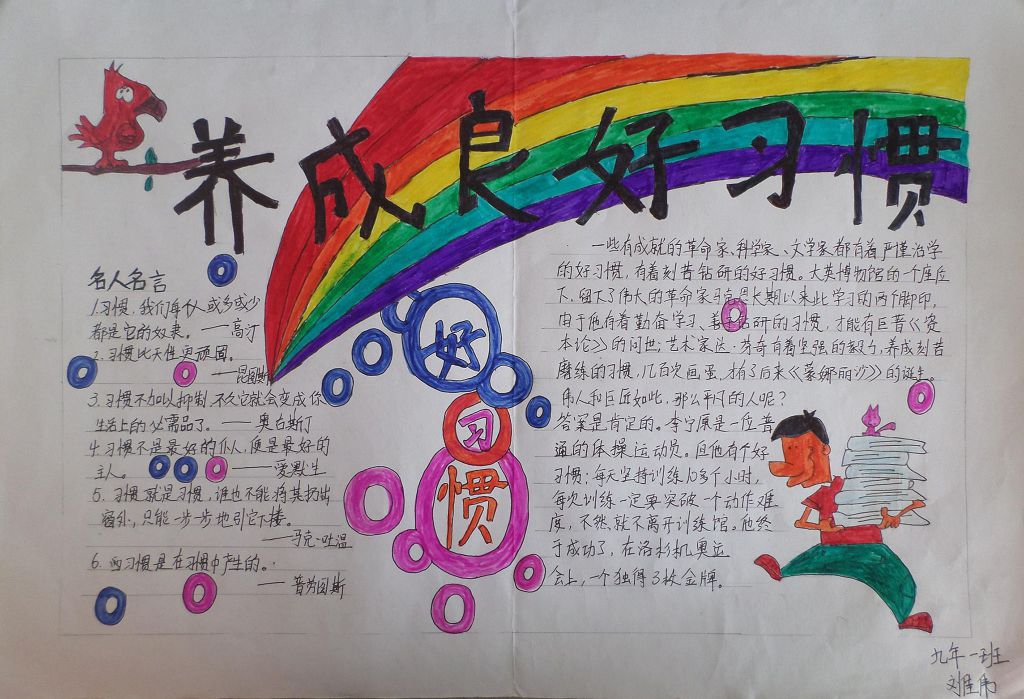 养成良好习惯
名人名言
1.习惯,我们每个人或多或少
都是它的奴隶。——高汀
2.习惯比天性更顽固。
——昆图斯
3.习惯不加以抑制,不久它就会变成你
生活上的必需品了。——奥古斯汀
4.习惯不是最好的仆人,便是最好的
主人。——爱默生
5.习惯就是习惯,谁也不能将其扔出
窗外,只能一步一步地引它下楼。
——马克·吐温
6.习惯是在习惯中产生的。
——普劳图斯
好
习
惯
一些有成就的革命家、科学家、文学家都有着严谨治学
的好习惯,有着刻苦钻研的好习惯。大英博物馆的一个座位
下,留下了伟大的革命家马克思长期以来此学习的两个脚印,
由于他有着勤奋学习、善于钻研的习惯,才能有巨著《资
本论》的问世;艺术家达·芬奇有着坚强的毅力,养成刻苦
磨练的习惯,几百次画蛋,才有了后来《蒙娜丽莎》的诞生。
伟人和巨匠如此,那么平凡的人呢?
答案是肯定的。李宁原是一位普
通的体操运动员。但他有个好
习惯:每天坚持训练10多个小时,
每次训练一定要突破一个动作难
度,不然就不离开训练馆。他终
于成功了,在洛杉机奥运
会上,一个独得3枚金牌。
九年一班